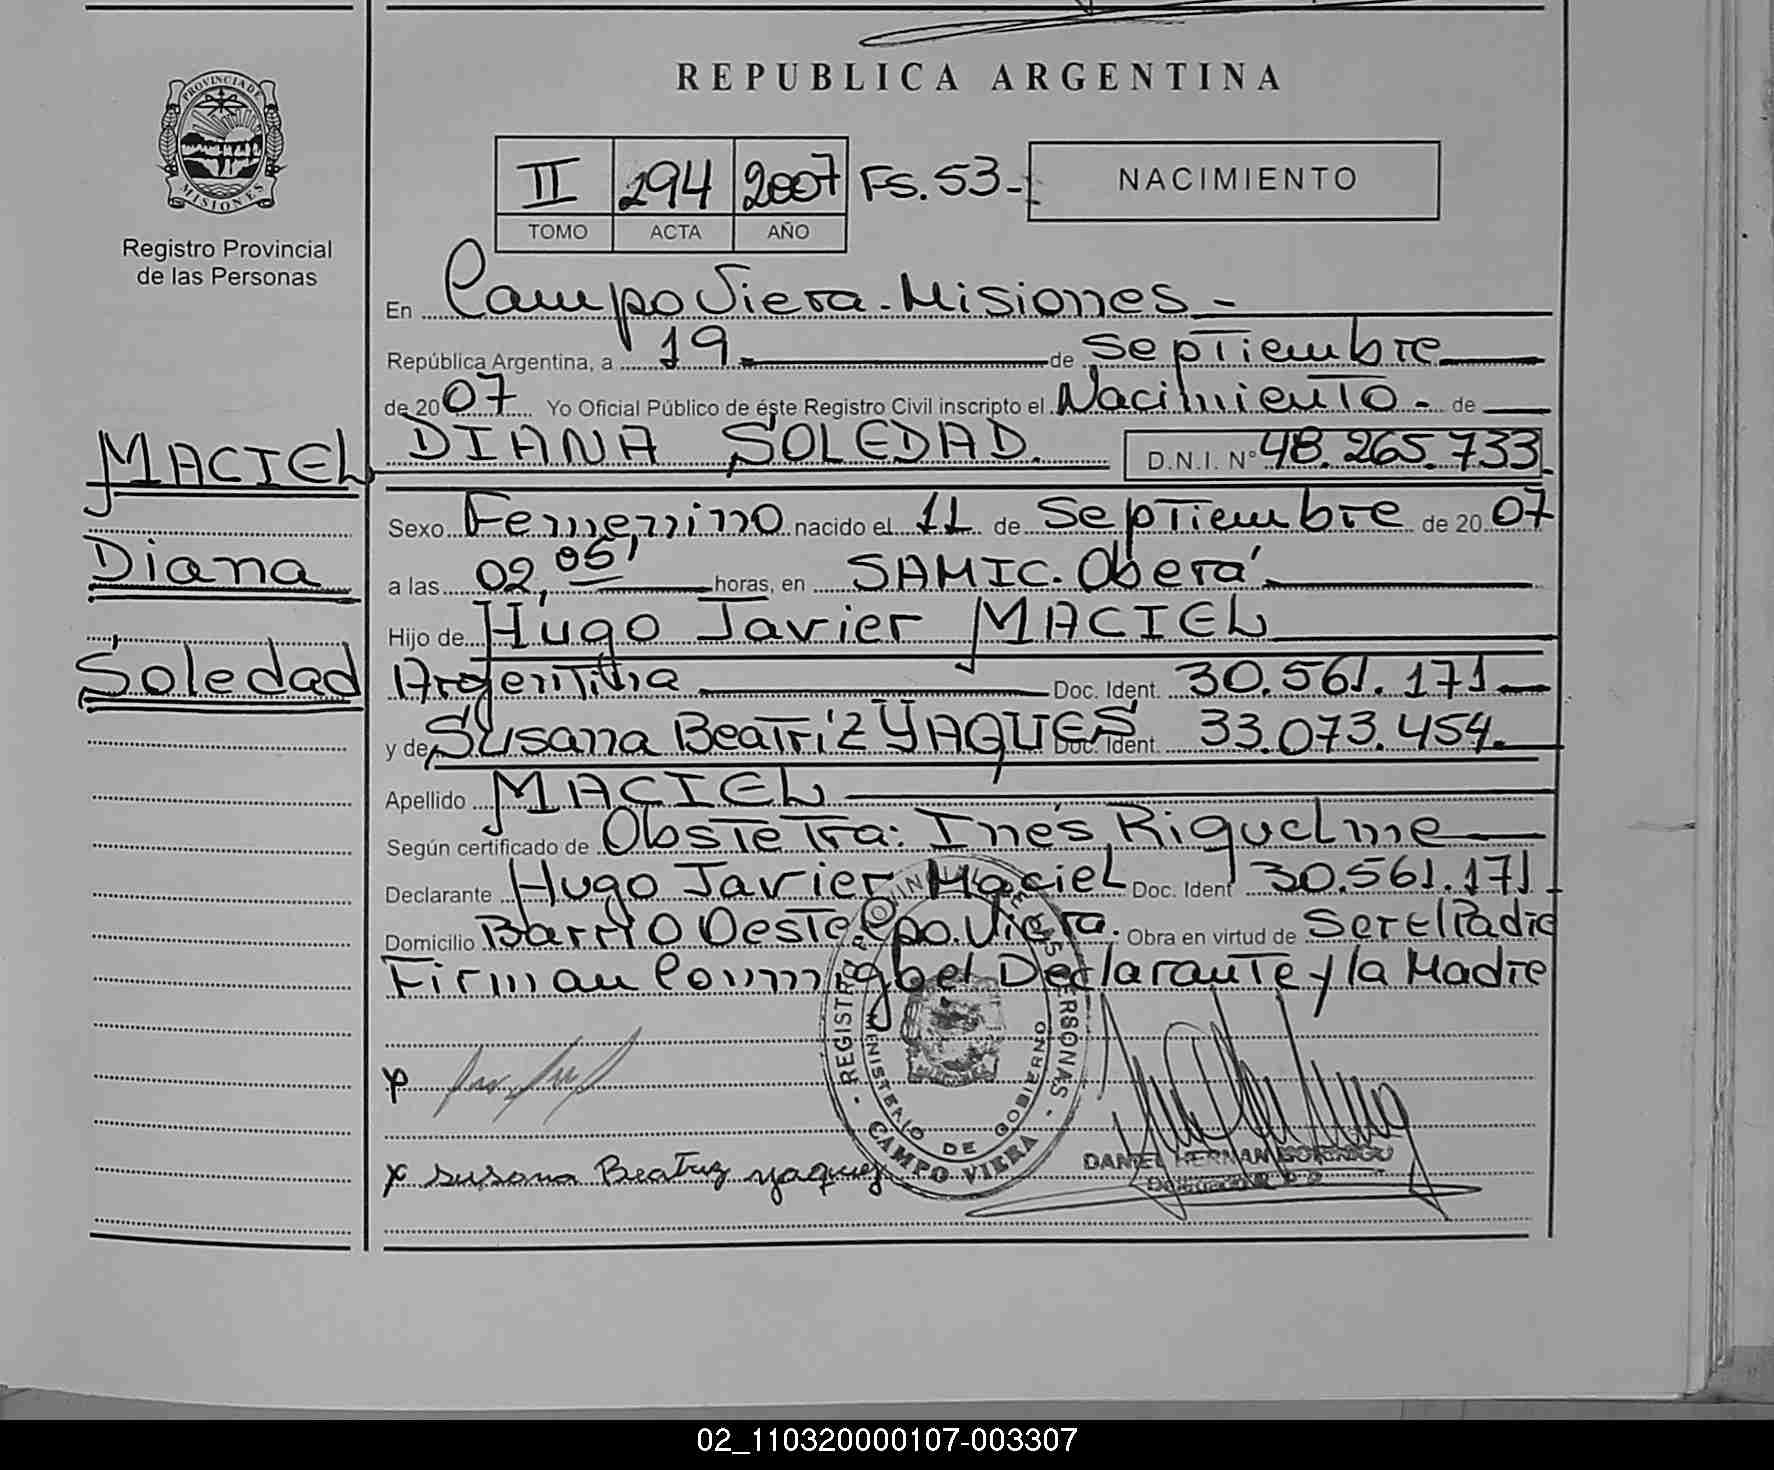 REPUBLICA ARGENTINA
PROVINCIA DE
MISIONES
Registro Provincial
de las Personas
II 294 2007 FS. 53-
TOMO ACTA AÑO
NACIMIENTO
En Campo Viera - Misiones -
República Argentina, a 19 de Septiembre
de 2007 Yo Oficial Público de éste Registro Civil inscripto el Nacimiento - de
MACIEL
DIANA SOLEDAD. D.N.I. N° 48.265.733
Sexo Femenino nacido el 11 de Septiembre de 2007
Diana
a las 02,05' horas, en SAMIC. Oberá
Hijo de Hugo Javier MACIEL
Soledad
Argentina Doc. Ident. 30.561.171
y de Susana Beatriz YAQUES Doc. Ident. 33.073.454.
Apellido MACIEL
Según certificado de Obstetra: Inés Riquelme
Declarante Hugo Javier Maciel Doc. Ident 30.561.171
Domicilio Barrio Oeste Cpo. Viera. Obra en virtud de Ser el Padre
Firman Conmigo el Declarante y la Madre
REGISTRO PROVINCIAL DE LAS PERSONAS
MINISTERIO DE GOBIERNO
CAMPO VIERA
x Susana Beatriz yaques
DANIEL HERNAN
02_110320000107-003307